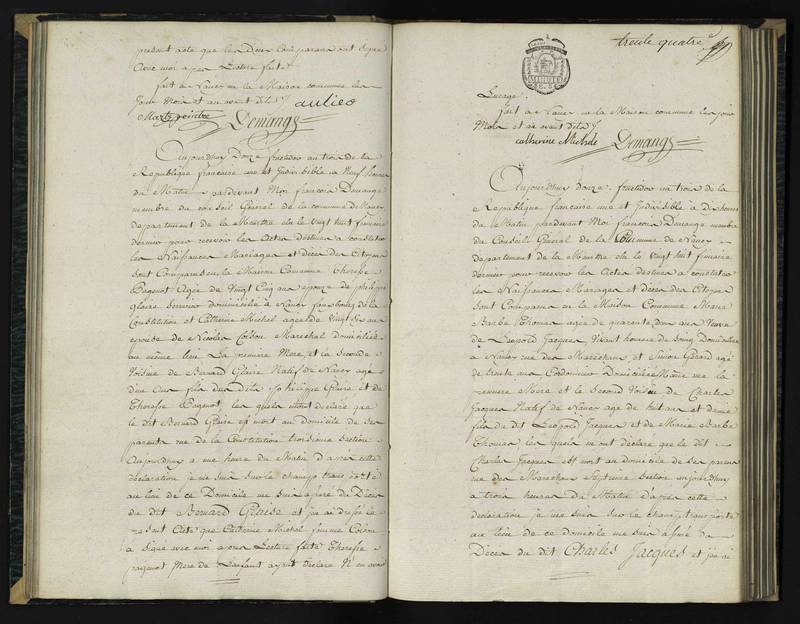 présent acte que les Deux Comparans ont signé
avec moi après Lecture faite
fait à Nancy en la Maison commune les
Jour Mois et an avant dits
Demange
Aujourdhuy Douze fructidor an trois de la
République française une et Indivisible à Neuf heures
du Matin pardevant Moi francois Demange
membre du conseil Général de la commune de Nancy
departement de la Meurthe élu le vingt huit frimaire
dernier pour recevoir les Actes destinés à constater
les Naissances Mariages et Décès des Citoyens
sont Comparues en la Maison Commune Therese
Pagnot Agée de Vingt Cinq ans epouse de philippe
Glaire domiciliée à Nancy fauxbourg de la
Constitution et Catherine Michel agée de vingt ans
epouse de Nicolas Colson Marechal domiciliée
au même lieu La premiere Mere, et la seconde
Voisine de Bernard Glaire Natif de Nancy agé
d'un an fils des dits Philippe Glaire et de
Therese Pagnot, les quels m'ont déclaré que
le dit Bernard Glaire est mort au Domicile de ses
parents rue de la Constitution troisieme Section
Aujourdhuy a une heure du Matin d'apres cette
déclaration je me suis sur le champ transporté
au lieu de ce Domicile me suis assuré du Décès
du dit Bernard Glaire et j'ai dressé le
présent Acte que Catherine Michel femme Colson
a Signé avec moi apres Lecture faite Therese
pagnot Mere de L'enfant ayant declaré N'en avoir
trente quatre
L'usage
fait à Nancy en la Maison commune les jour
Mois et an avant dits
catherine Michele Demange
Aujourdhuy douze fructidor an trois de la
République française une et Indivisible à dix heures
du Matin pardevant Moi francois Demange membre
du Conseil Général de la Commune de Nancy
departement de la Meurthe élu le vingt huit frimaire
dernier pour recevoir les Actes destinés a constater
les Naissances Mariages et décès des Citoyens
sont Comparus en la Maison Commune Marie
Barbe Thomas agée de quarante ans Veuve
de Léopold Jacques, Vivant homme de Domiciliée
à Nancy rue des Marechaux et Simon Gerard agé
de trente ans Cordonnier Domicilié Même rue la
premiere Mere et le Second Voisin de Charles
Jacques Natif de Nancy agé de huit ans et demi
fils du dit Léopold Jacques et de Marie Barbe
Thomas les quels m'ont déclaré que le dit
Charles Jacques est mort au domicile de ses parens
rue des Marechaux Septieme Section aujourdhuy
à trois heures du Matin d'apres cette
declaration je me suis sur le champ transporté
au lieu de ce domicile me suis assuré du
Décès du dit Charles Jacques et j'ai